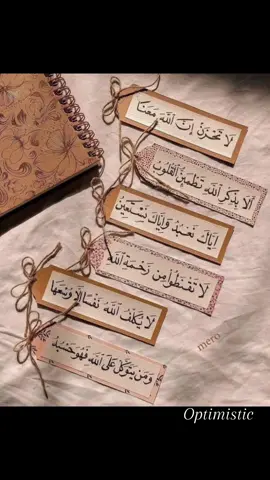 لا تحزن إن الله معنا
ألا بذكر الله تطمئن القلوب
إياك نعبد وإياك نستعين
لا تقنطوا من رحمة الله
لا يكلف الله نفسا إلا وسعها
ومن يتوكل على الله فهو حسبه
mero
Optimistic